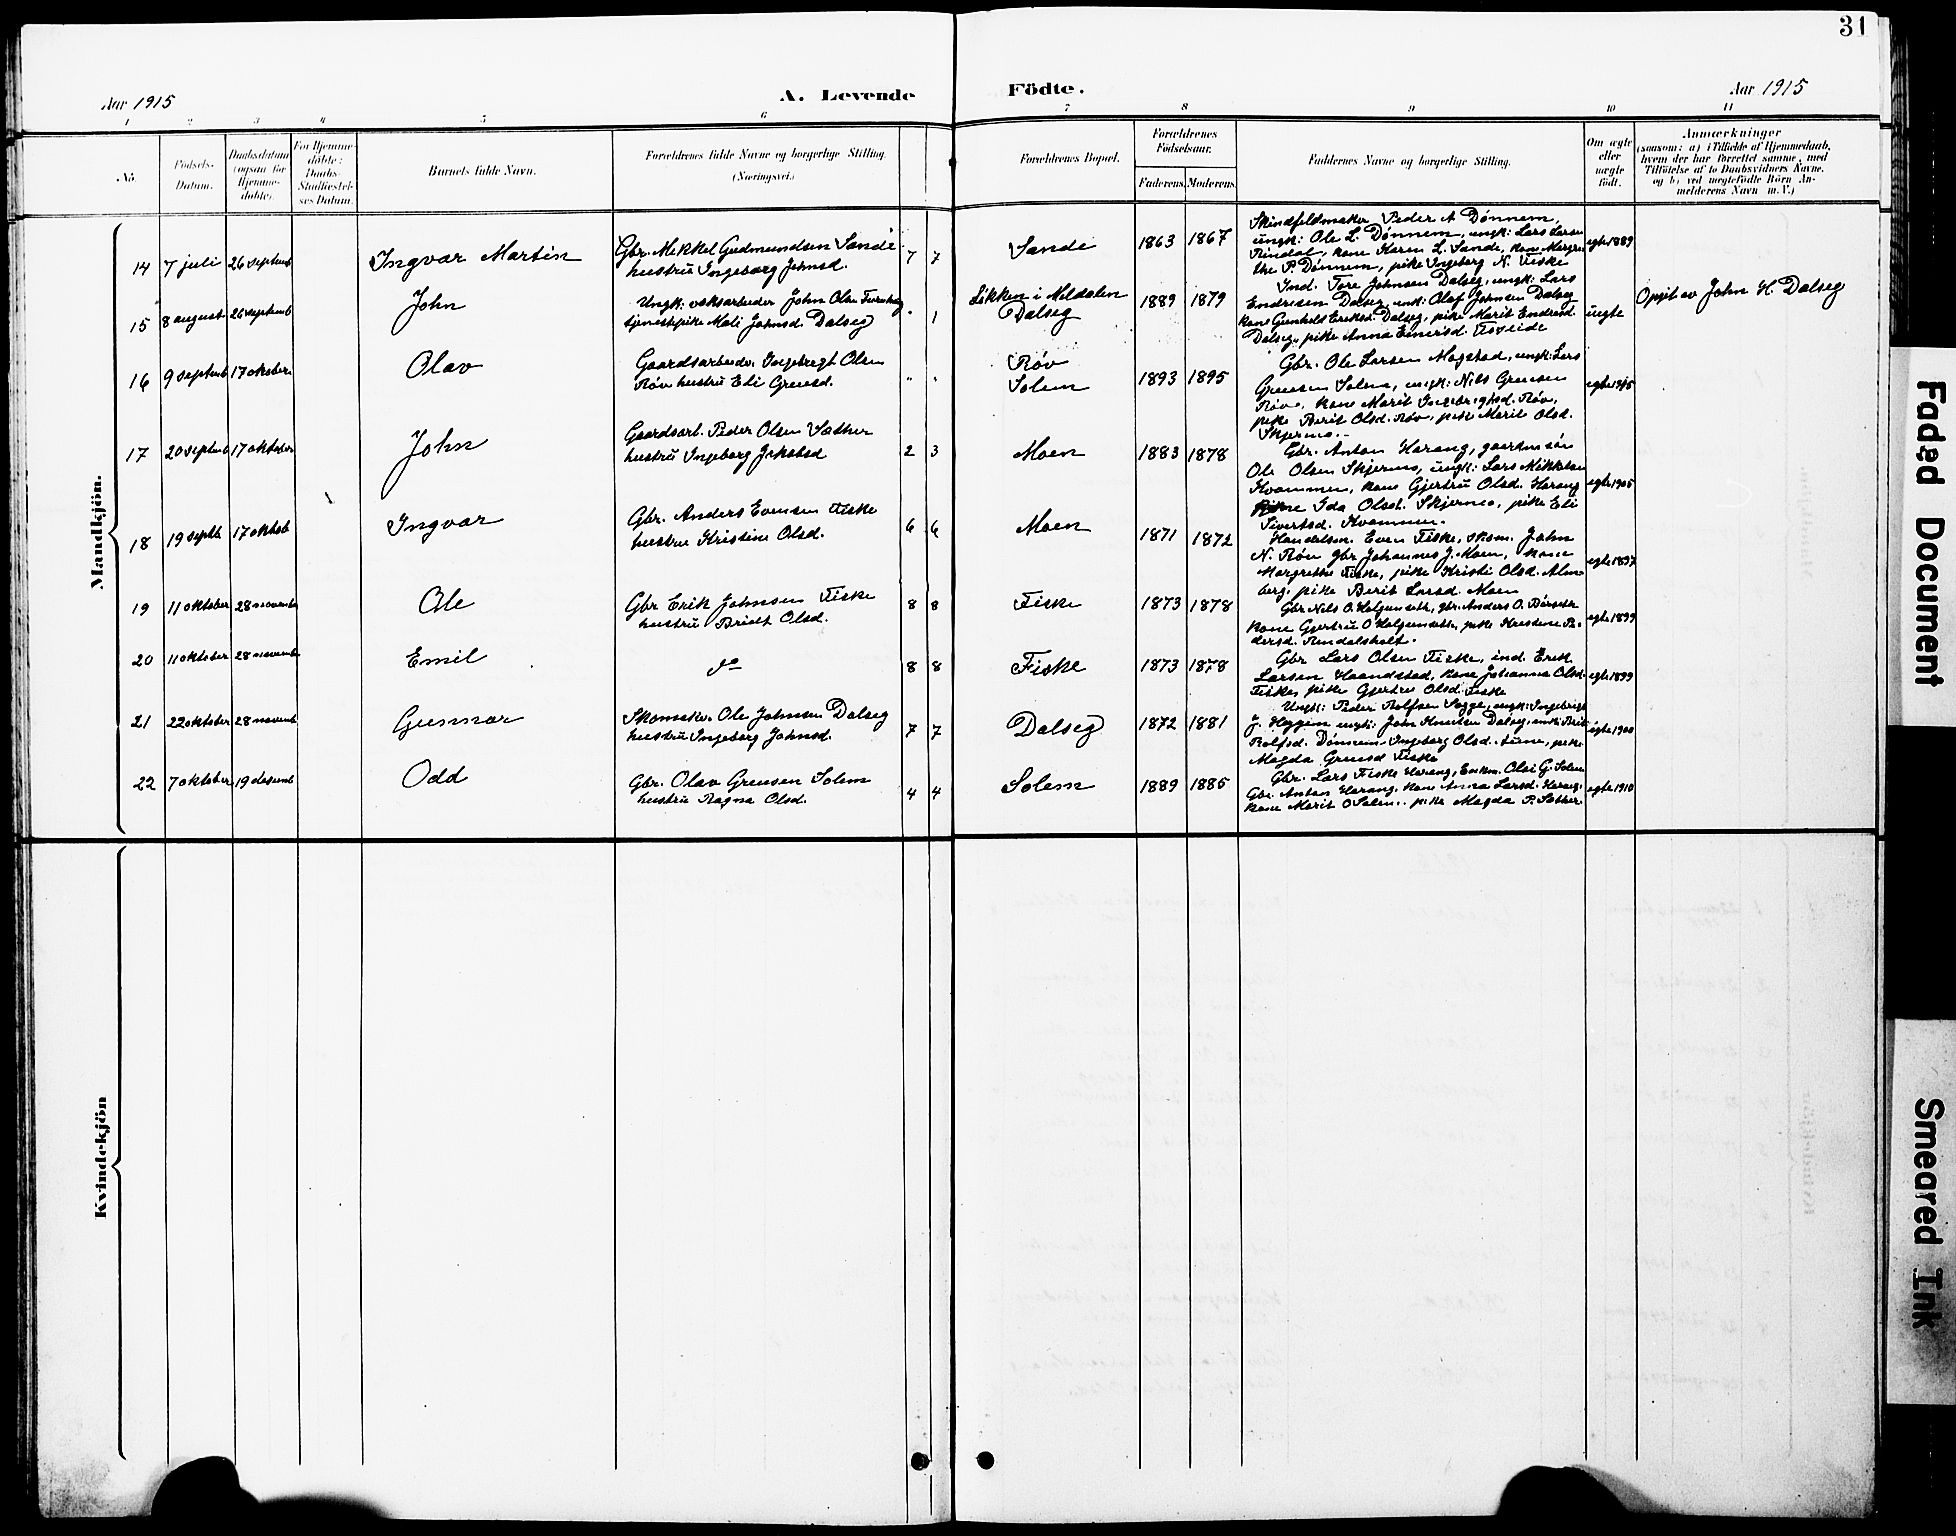 31
Aar 1915
A. Levende
Födte.
Aar 1915
1 2 3 4 5 6 7 8 9 10 11
No.
Födsels-
Datum.
Daabsdatum
(ogsaa for
Hjemme-
döbte).
For Hjemme-
döbte:
Daabs-
Stadfæstel-
ses Datum.
Barnets fulde Navn.
Forældrenes fulde Navne og borgerlige Stilling.
(Næringsvei.)
Forældrenes Bopæl.
Forældrenes
Födselsaar.
Faderens.
Moderens.
Faddernes Navne og borgerlige Stilling.
Om ægte
eller
uægte
födt.
Anmærkninger
(saasom: a) i Tilfælde af Hjemmedaab,
hvem der har forrettet samme, med
Tilföielse af to Daabsvidners Navne,
og b) ved uægtefödte Börn An-
melderens Navn m. V.)
Mandkjön.
14 7 juli 26 septemb Ingvar Martin
Gbr. Mikkel Gudmundsen Sande
hustru Ingeborg Johnsd.
7 7 Sande 1863 1867
Skindfeldmaker Peder A Dönnem,
ungk: Ole L. Dönnem, ungk: Lars Larsen
Rindal, kone Karen L. Sande, kone Margre
the P. Dönnem, pike Ingeborg N. Fiske
egte 1889
15 8 august 26 septemb John
Ungk: John Olsen
tjenestepike Mali Johnsd. Dalseg
" 1
Løkken i Meldalen
Dalseg
1889 1879
Ind. Tore Johnsen Dalseg, ungk: Lars
Endresen Dalseg, ungk: Olaf Johnsen Dalseg
kone Gunhild Eriksd. Dalseg, pike Marit Endresd
Dalseg, pike Anna Einersd.
uegte
Opgit av John H. Dalseg
16 9 septemb 17 oktober Olav
Gaardsarbeider Ingebregt Olsen
Röv hustru Eli Gruesd.
" "
Röv
Solem
1893 1895
Gbr. Ole Larsen Mogstad, ungk: Lars
Gruesen Solem, ungk: Nils Gruesen
Röv, kone Marit Ingebrigtsd. Röv,
pike Berit Olsd. Röv, pike Marit Olsd.
Skjermo.
egte 1915
17 20 septemb 17 oktober John
Gaardsarb. Peder Olsen Sæther
hustru Ingeborg
2 3 Moen 1883 1878
Gbr. Anton Harang, gaardmansön
Ole Olsen Skjermo, ungk: Lars Mikkelsen
Kvammen, kone Gjertru Olsd. Harang
Ida Olsd. Skjermo, pike Eli
Sivertsd. Kvammen.
egte 1905
18 19 septb 17 oktob Ingvar
Gbr. Anders Evensen Fiske
hustru Kristine Olsd.
6 6 Moen 1871 1872
Handelsm. Even Fiske, skom. John
N. Röv gbr Johannes J. Moen, kone
Margrethe Fiske, pike Kristi Olsd. Alm
berg, pike Berit Larsd. Moen
egte 1897
19 11 oktober 28 novemb Ole
Gbr Erik Johnsen Fiske
hustru Bridt Olsd.
8 8 Fiske 1873 1878
Gbr Nils O. Helgemseth, gbr. Anders O. Börseth
kone Gjertru O Helgumseth, pike Kristine Pe-
dersd. Rindalsholt.
egte 1899
20 11 oktober 28 novemb Emil
do
8 8 Fiske 1873 1878
Gbr Lars Olsen Fiske, ind. Erik
Larsen Haandstad, kone Johanna Olsd.
Fiske, pike Gjertru Olsd. Fiske
egte 1899
21 22 oktober 28 novemb Gunnar
Skomaker Ole Johnsen Dalseg
hustru Ingeborg Johnsd.
7 7 Dalseg 1872 1881
Ungk: Peder Rolfsen Sogge, ungk: Ingebrigt
J. Heggem ungk: John Knutsen Dalseg,
Rolfsd. Dönnem Ingeborg Olsd. pike
Magda Gruesd Fiske
egte 1900
22 7 oktober 19 desemb Odd
Gbr. Olav Gruesen Solem
hustru Ragna Olsd.
4 4 Solem 1889 1885
Gbr. Lars Fiske Harang, Enkm. Olai G. Solem
Gbr. Anton Harang, kone Anna Larsd. Harang
kone Marit O Solem, pike Magda P. Sæther
egte 1910
Kvindekjön
Faded Document
Smeared Ink